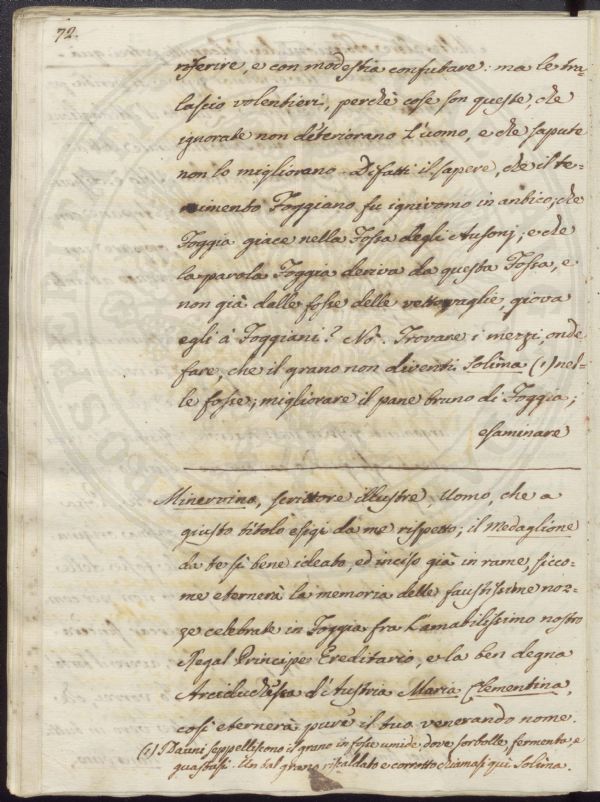 72.
riferire, e con modestia confutare: ma le tra=
lascio volentieri, perchè cose son queste, che
ignorate non deteriorano l'uomo, e che sapute
non lo migliorano. Difatti il sapere, che il te=
nimento Foggiano fu ignivomo in antico; che
Foggia giace nella Fossa degli Ausonj; e che
la parola Foggia deriva da questa Fossa, e
non già dalle fosse delle vettovaglie, giova
egli à Foggiani? Nò. Trovare i mezzi, onde
fare, che il grano non diventi Solima (1) nel=
le fosse; migliorare il pane bruno di Foggia;
esaminare
Minervino, scrittore illustre, Uomo, che a
giusto titolo esigi da me rispetto; il Medaglione
da te sì bene ideato, ed inciso già in rame, sicco=
me eternerà la memoria delle faustissime noz=
ze celebrate in Foggia fra l'amabilissimo nostro
Regal Principe Ereditario, e la ben degna
Arciduchessa d'Austria Maria Clementina,
così eternerà pure il tuo venerando nome.
(1) I Dauni seppelliscono il grano in fosse umide, dove sorbolle, fermenta, e
guastasi. Un tal grano riscaldato e corrotto chiamasi quì Solima.